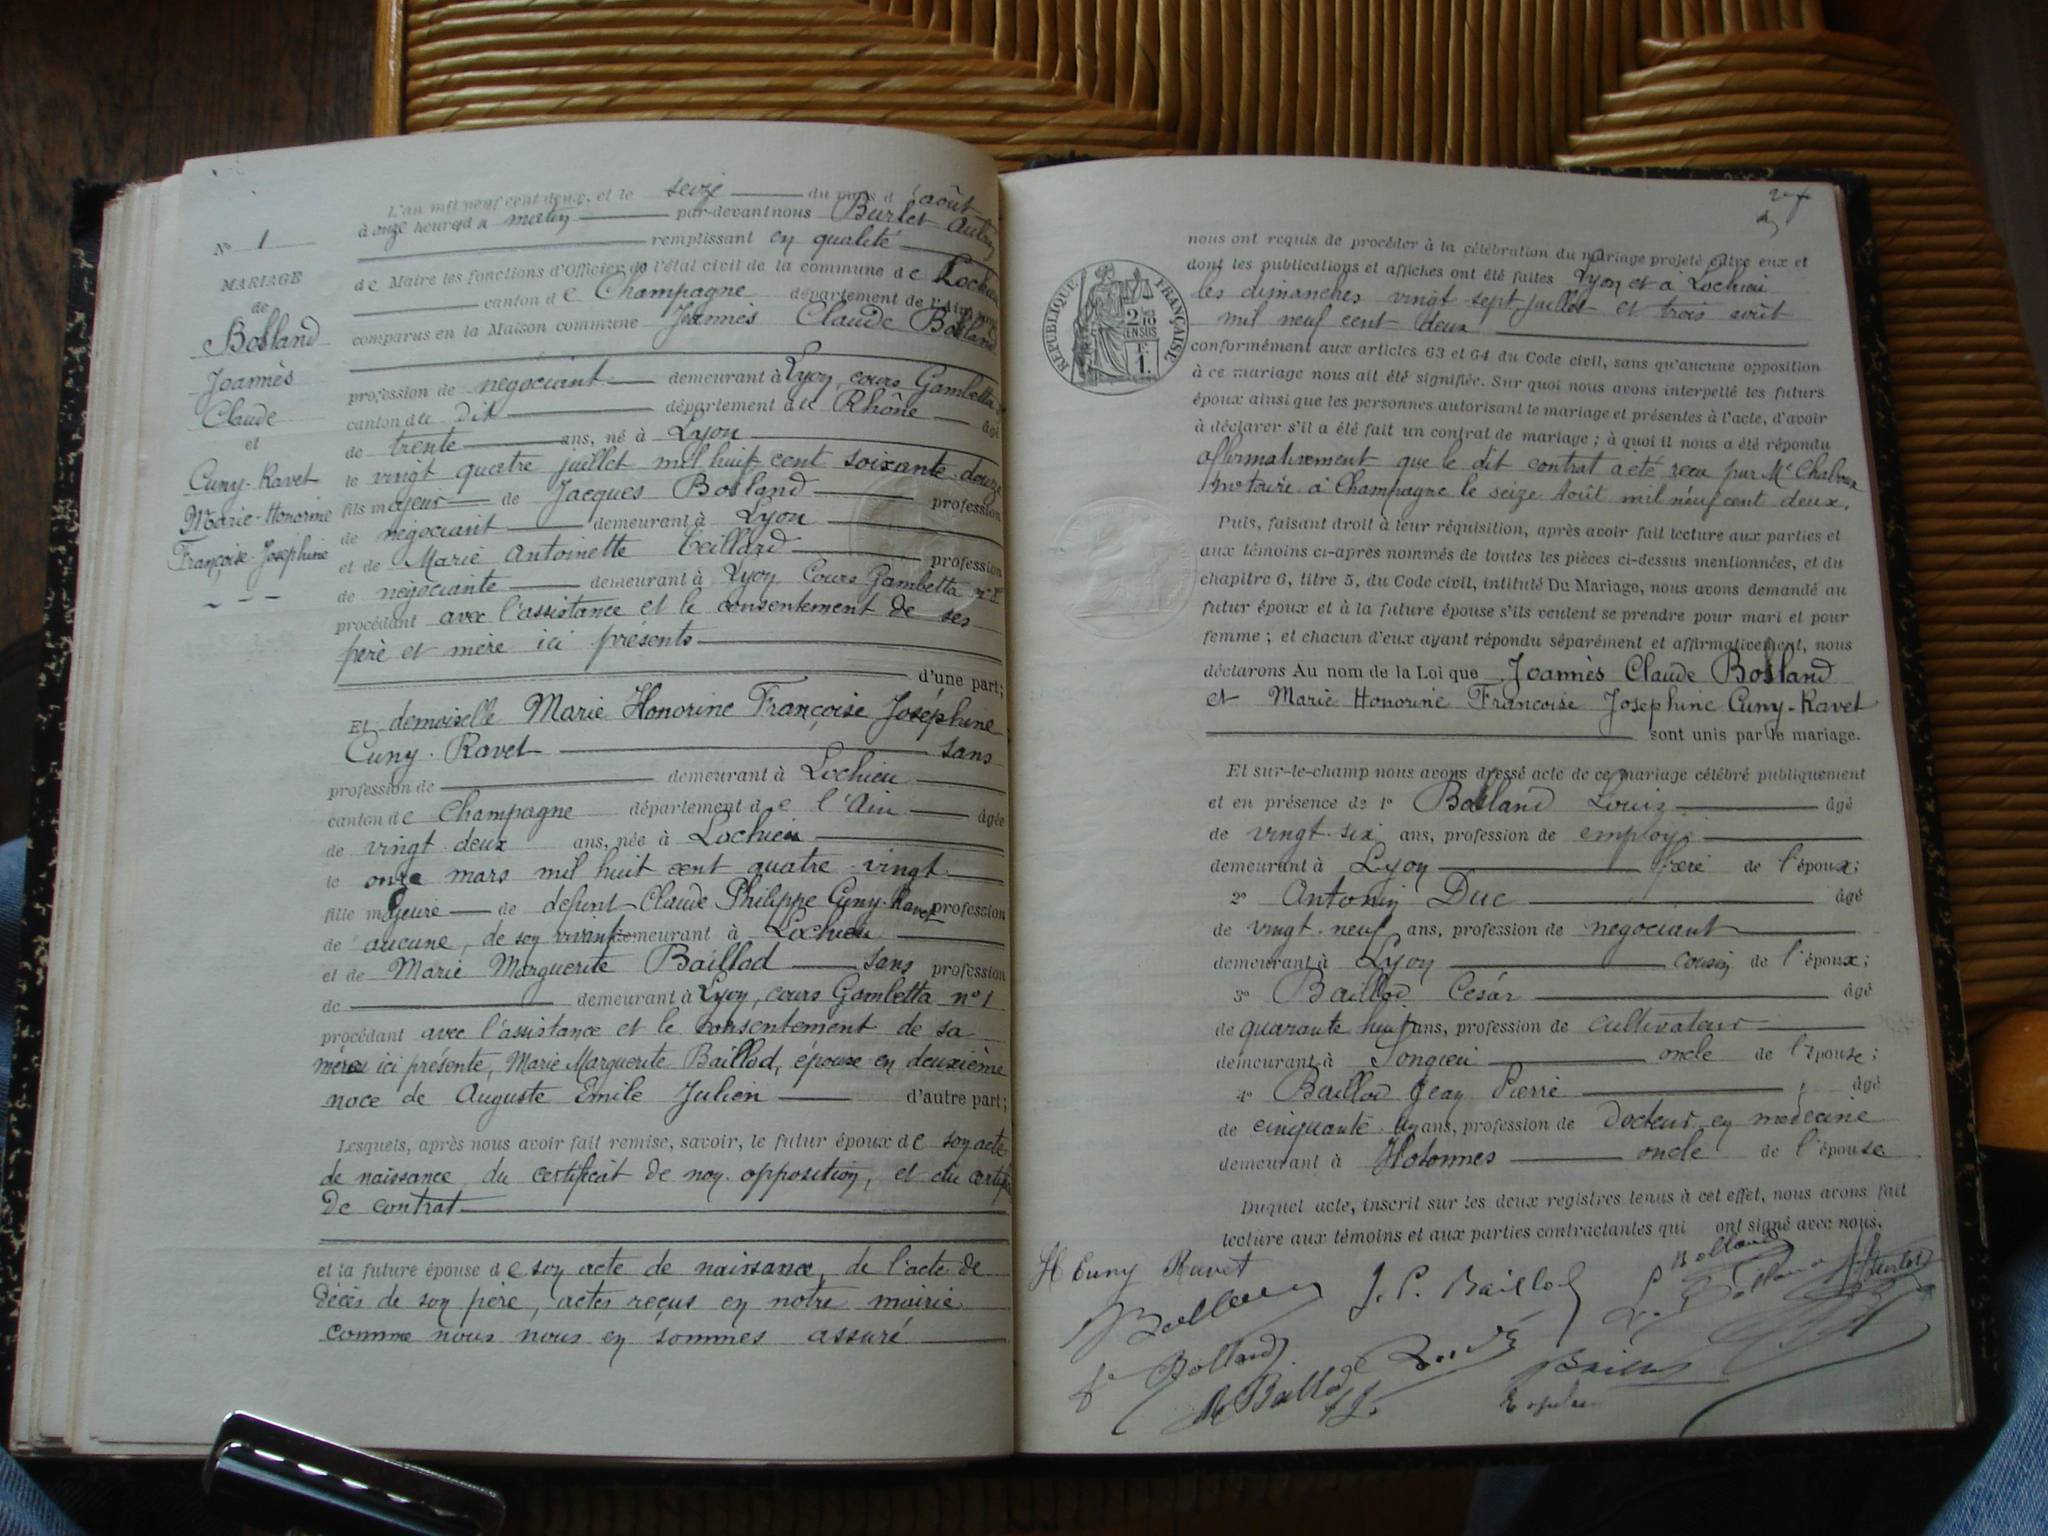 N° 1
MARIAGE
de
Bolland
Joannès
Claude
et
Cuny-Ravet
Marie-Honorine
Françoise-Joséphine
L'an mil neuf cent deux, et le seize du mois d'août
à onze heures du matin par-devant nous Burlet
remplissant en qualité
de Maire les fonctions d'Officier de l'état civil de la commune de Lochieu
canton de Champagne département de l'Ain, sont
comparus en la Maison commune Joannès Claude Bolland
profession de négociant demeurant à Lyon, cours Gambetta
canton du dit département du Rhône âgé
de trente ans, né à Lyon
le vingt quatre juillet mil huit cent soixante douze
fils majeur de Jacques Bolland profession
de négociant demeurant à Lyon
et de Marie Antoinette Teillard profession
de négociante demeurant à Lyon Cours Gambetta n° 1
procédant avec l'assistance et le consentement de ses
père et mère ici présents
d'une part;
Et demoiselle Marie Honorine Françoise Joséphine
Cuny-Ravet sans
profession de demeurant à Lochieu
canton de Champagne département de l'Ain âgée
de vingt deux ans, née à Lochieu
le onze mars mil huit cent quatre-vingt
fille majeure de défunt Claude Philippe Cuny-Ravet profession
de aucune, de son vivant demeurant à Lochieu
et de Marie Marguerite Baillod sans profession
de demeurant à Lyon, cours Gambetta n° 1
procédant avec l'assistance et le consentement de sa
mère ici présente, Marie Marguerite Baillod, épouse en deuxième
noce de Auguste Emile Julien d'autre part;
Lesquels, après nous avoir fait remise, savoir, le futur époux de son acte
de naissance, du certificat de non opposition, et du certificat
de contrat
et la future épouse de son acte de naissance, de l'acte de
décès de son père, actes reçus en notre mairie
comme nous nous en sommes assuré
RÉPUBLIQUE FRANÇAISE
2/10 EN SUS
1 F.
nous ont requis de procéder à la célébration du mariage projeté entre eux et
dont les publications et affiches ont été faites Lyon et à Lochieu
les dimanches vingt-sept juillet et trois août
mil neuf cent deux
conformément aux articles 63 et 64 du Code civil, sans qu'aucune opposition
à ce mariage nous ait été signifiée. Sur quoi nous avons interpellé les futurs
époux ainsi que les personnes autorisant le mariage et présentes à l'acte, d'avoir
à déclarer s'il a été fait un contrat de mariage; à quoi il nous a été répondu
affirmativement que le dit contrat a été reçu par Me
notaire à Champagne le seize août mil neuf cent deux.
Puis, faisant droit à leur réquisition, après avoir fait lecture aux parties et
aux témoins ci-après nommés de toutes les pièces ci-dessus mentionnées, et du
chapitre 6, titre 5, du Code civil, intitulé Du Mariage, nous avons demandé au
futur époux et à la future épouse s'ils veulent se prendre pour mari et pour
femme; et chacun d'eux ayant répondu séparément et affirmativement, nous
déclarons Au nom de la Loi que Joannès Claude Bolland
et Marie Honorine Françoise Joséphine Cuny-Ravet
sont unis par le mariage.
Et sur-le-champ nous avons dressé acte de ce mariage célébré publiquement
et en présence de 1° Bolland Louis âgé
de vingt-six ans, profession de employé
demeurant à Lyon frère de l'époux;
2° Antonin Duc âgé
de vingt-neuf ans, profession de négociant
demeurant à Lyon cousin de l'époux;
3° Baillod César âgé
de quarante huit ans, profession de cultivateur
demeurant à Songieu oncle de l'épouse;
4° Baillod Jean Pierre âgé
de cinquante un ans, profession de Docteur en médecine
demeurant à Hotonnes oncle de l'épouse
Duquel acte, inscrit sur les deux registres tenus à cet effet, nous avons fait
lecture aux témoins et aux parties contractantes qui ont signé avec nous.
H Cuny Ravet
Bolland
J. P. Baillod
Bolland
Burlet
Bolland
Baillod